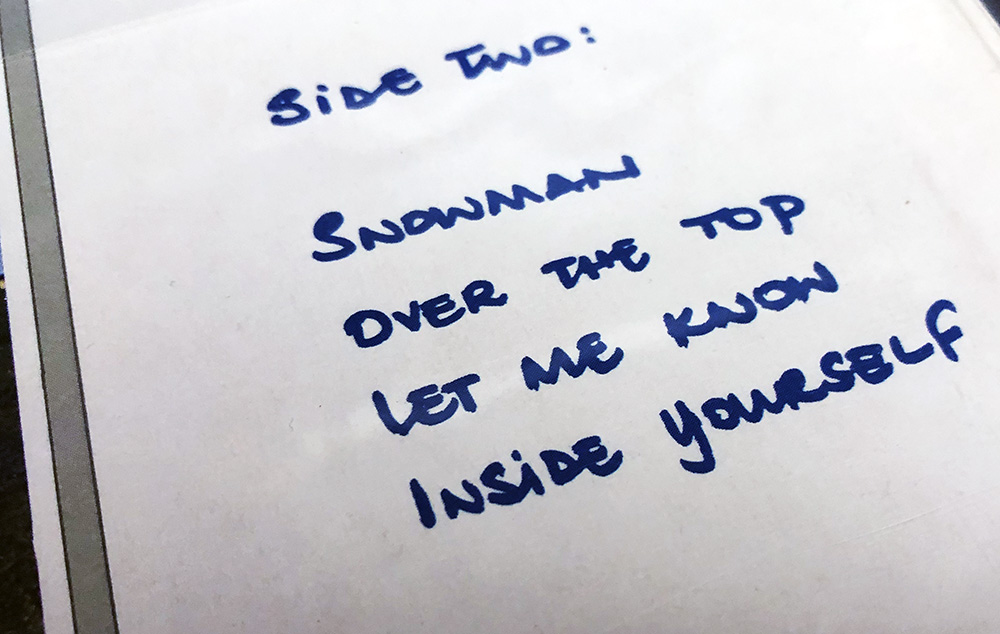 SiDE TWO:
SNOWMAN
OVER THE TOP
LET ME KNOW
INSiDE YOURSELF